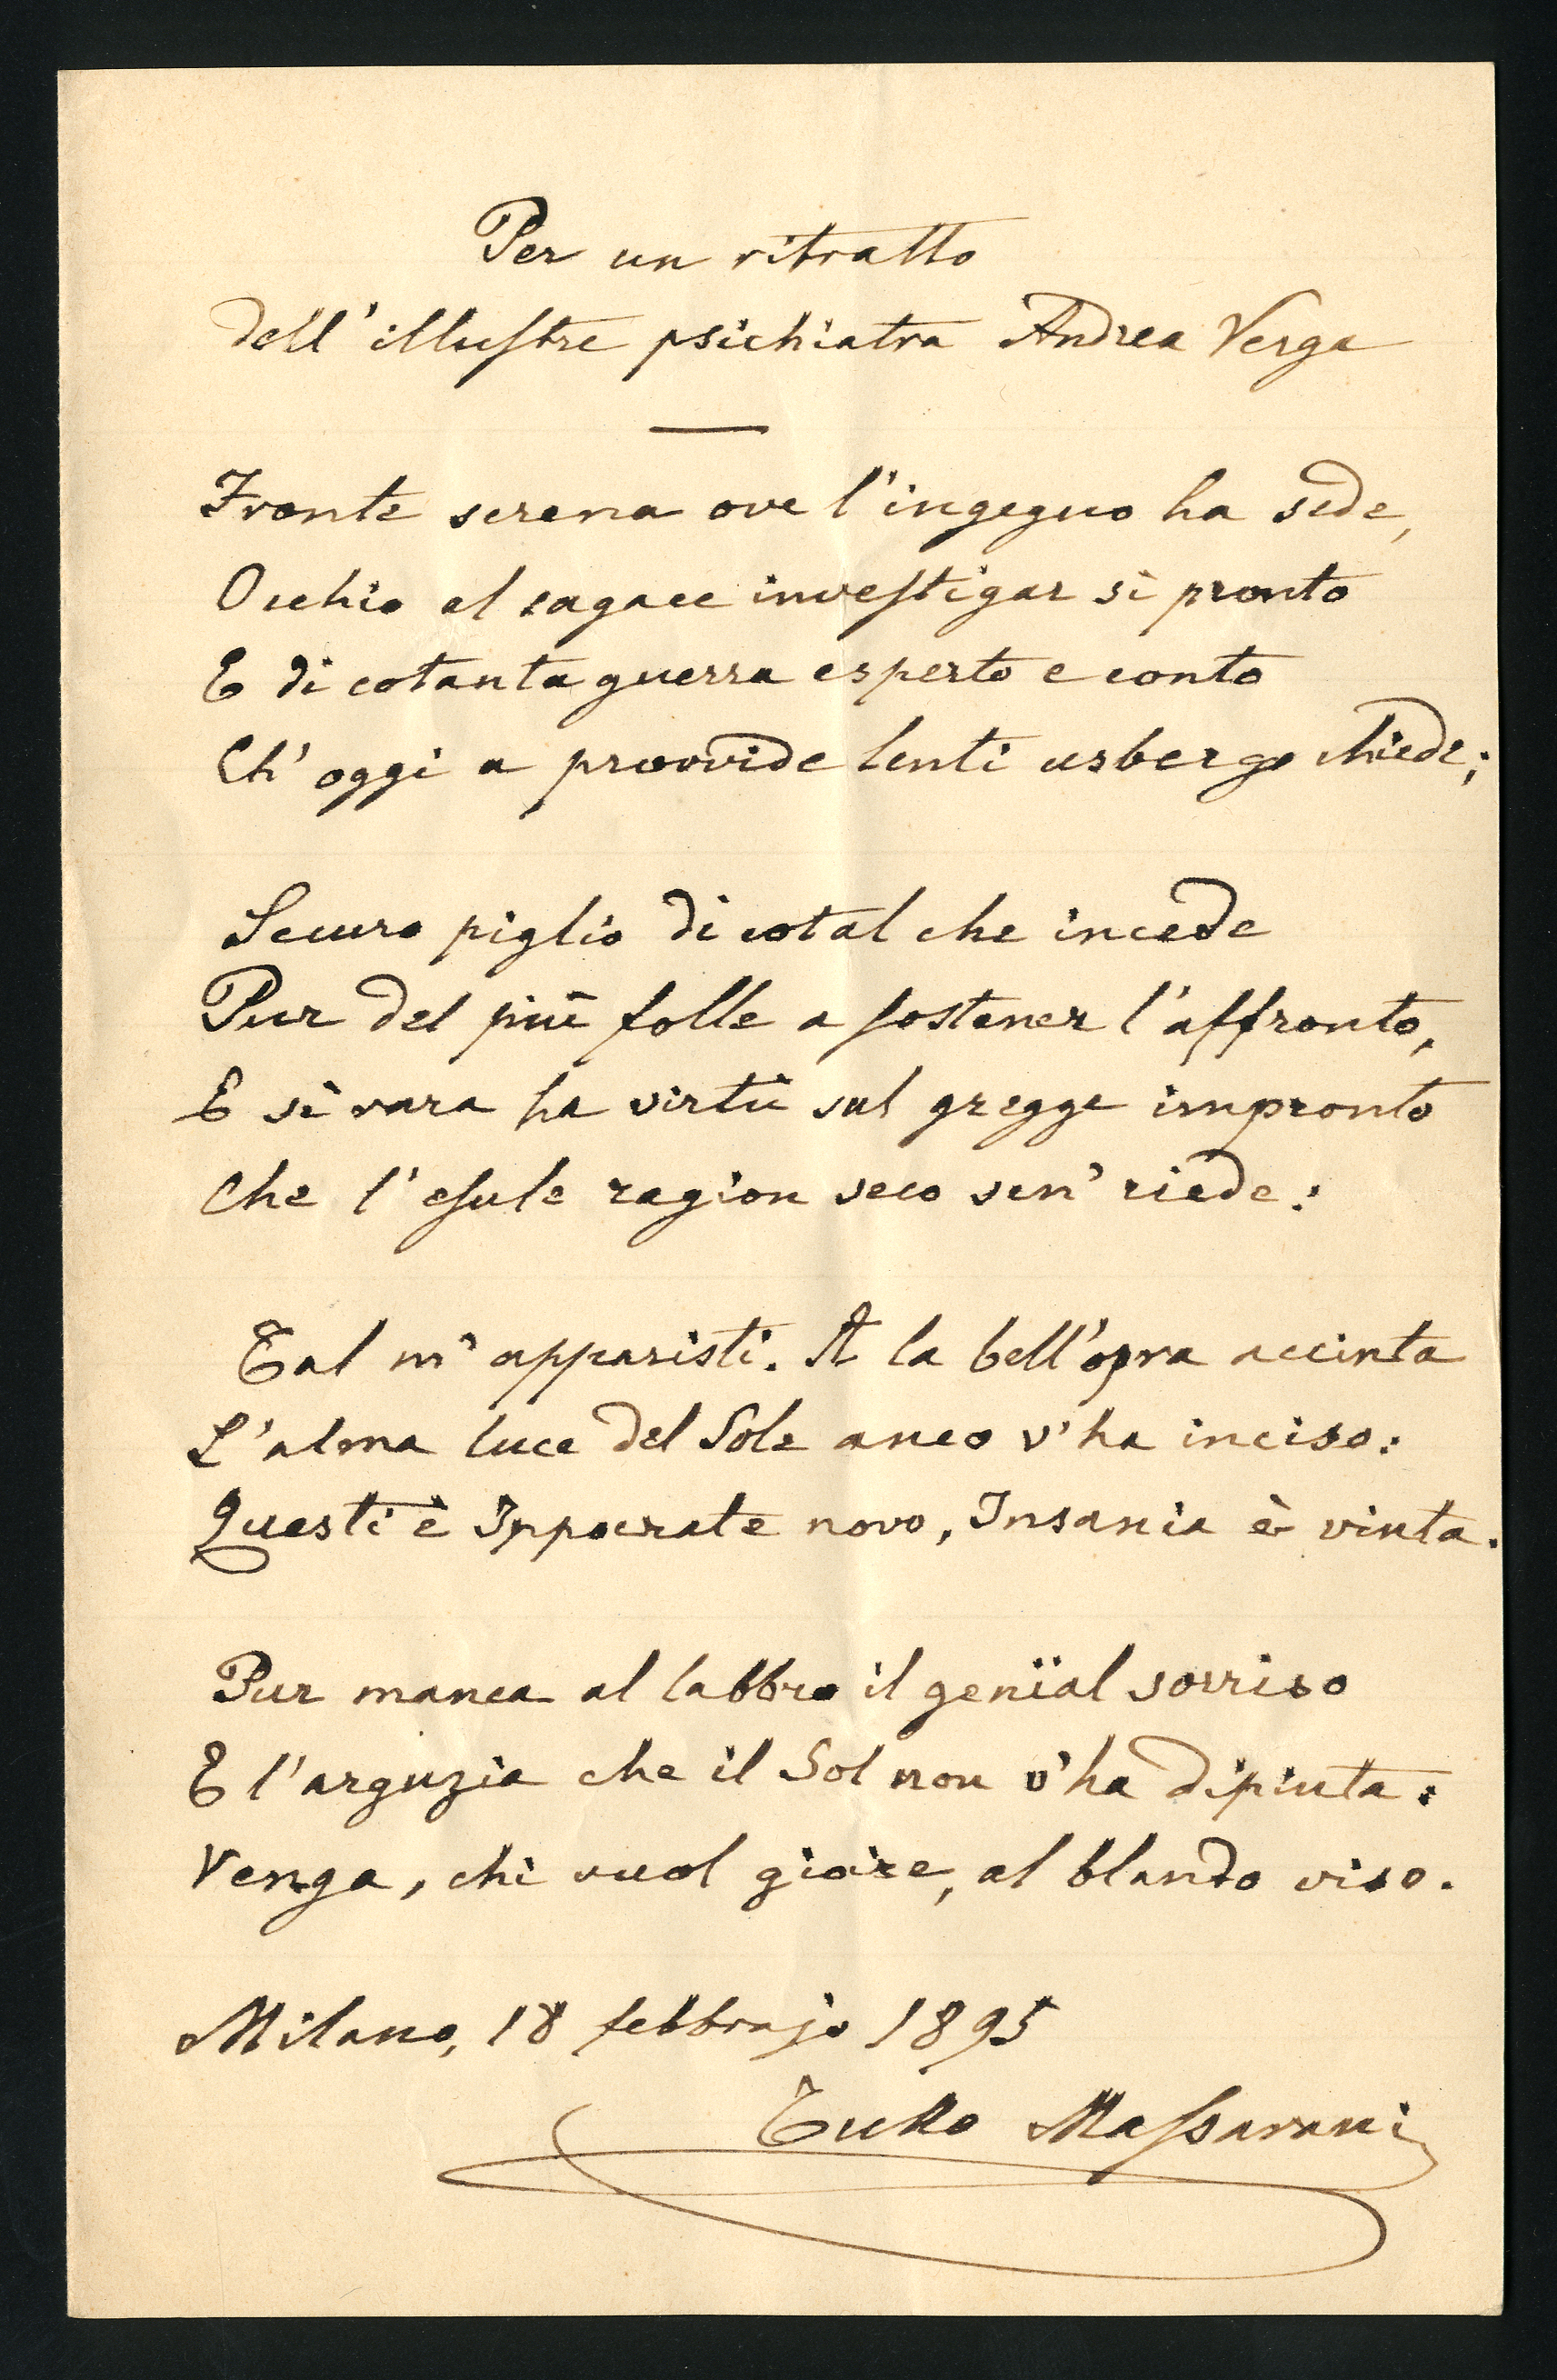 Per un ritratto
dell'illustre psichiatra Andrea Verga
Fronte serena ove l'ingegno ha sede,
Occhio al sagace investigar sì pronto
E di cotanta guerra esperto e conto
Ch'oggi a provvide lenti usbergo chiede;
Securo piglio di cotal che incede
Pur del più folle a sostener l'affronto,
E sì rara ha virtù sul gregge impronto
Che l'esule ragion seco sen' riede:
Tal m'apparisti. A la bell'opra accinta
L'alma luce del Sole anco v'ha inciso:
Questi è Ippocrate novo, Insania è vinta.
Pur manca al labbro il genïal sorriso
E l'arguzia che il Sol non v'ha dipinta:
Venga, chi vuol gioire, al blando viso.
Milano, 18 febbrajo 1895
Tullo Massarani